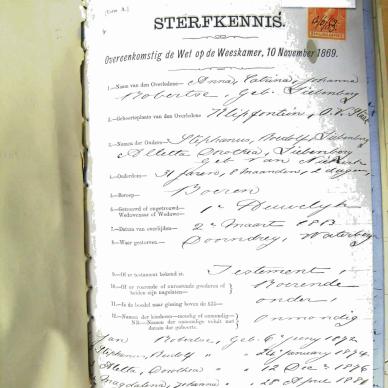 [Form A.]
STERFKENNIS.
Overeenkomstig de Wet op de Weeskamer, 10 November 1869.
1.—Naam van den Overledene— Anna, Catrina, Johanna
Robertse, geb. Liebenberg
2.—Geboorteplaats van den Overledene Klipfontein, O. V. Staat
3.—Namen der Ouders— Stephanus, Rudolf, Liebenberg
Aletta, Dorothea, Liebenberg
Geb Van Niekerk
4.—Ouderdom— 31 jaren, 8 maanden, 2 dagen
5.—Beroep— Boeren
6.—Getrouwd of ongetrouwd. Weduwnaar of Weduwe— 1e Huwelyk
7.—Datum van overlijden— 2e Maart
8.—Waar gestorven— Waterberg
9.—Of er testament bekend is. Testament
10.—Of er roerende of onroerende goederen of beiden zijn nagelaten— Roerende
11.—Is de boedel naar gissing boven de £15— onder
12.—Namen der kinderen—mondig of onmondig— Onmondig
NB.—Namen der minderen voluit met datum der geboorte.
Jan Robertse, Geb. 6e Juny 1892
Stephanus, Rudolf " " 24 January 1894
Aletta, Dorothea " " 12 Dec 1896
Magdalena, Johanna " " 28 April